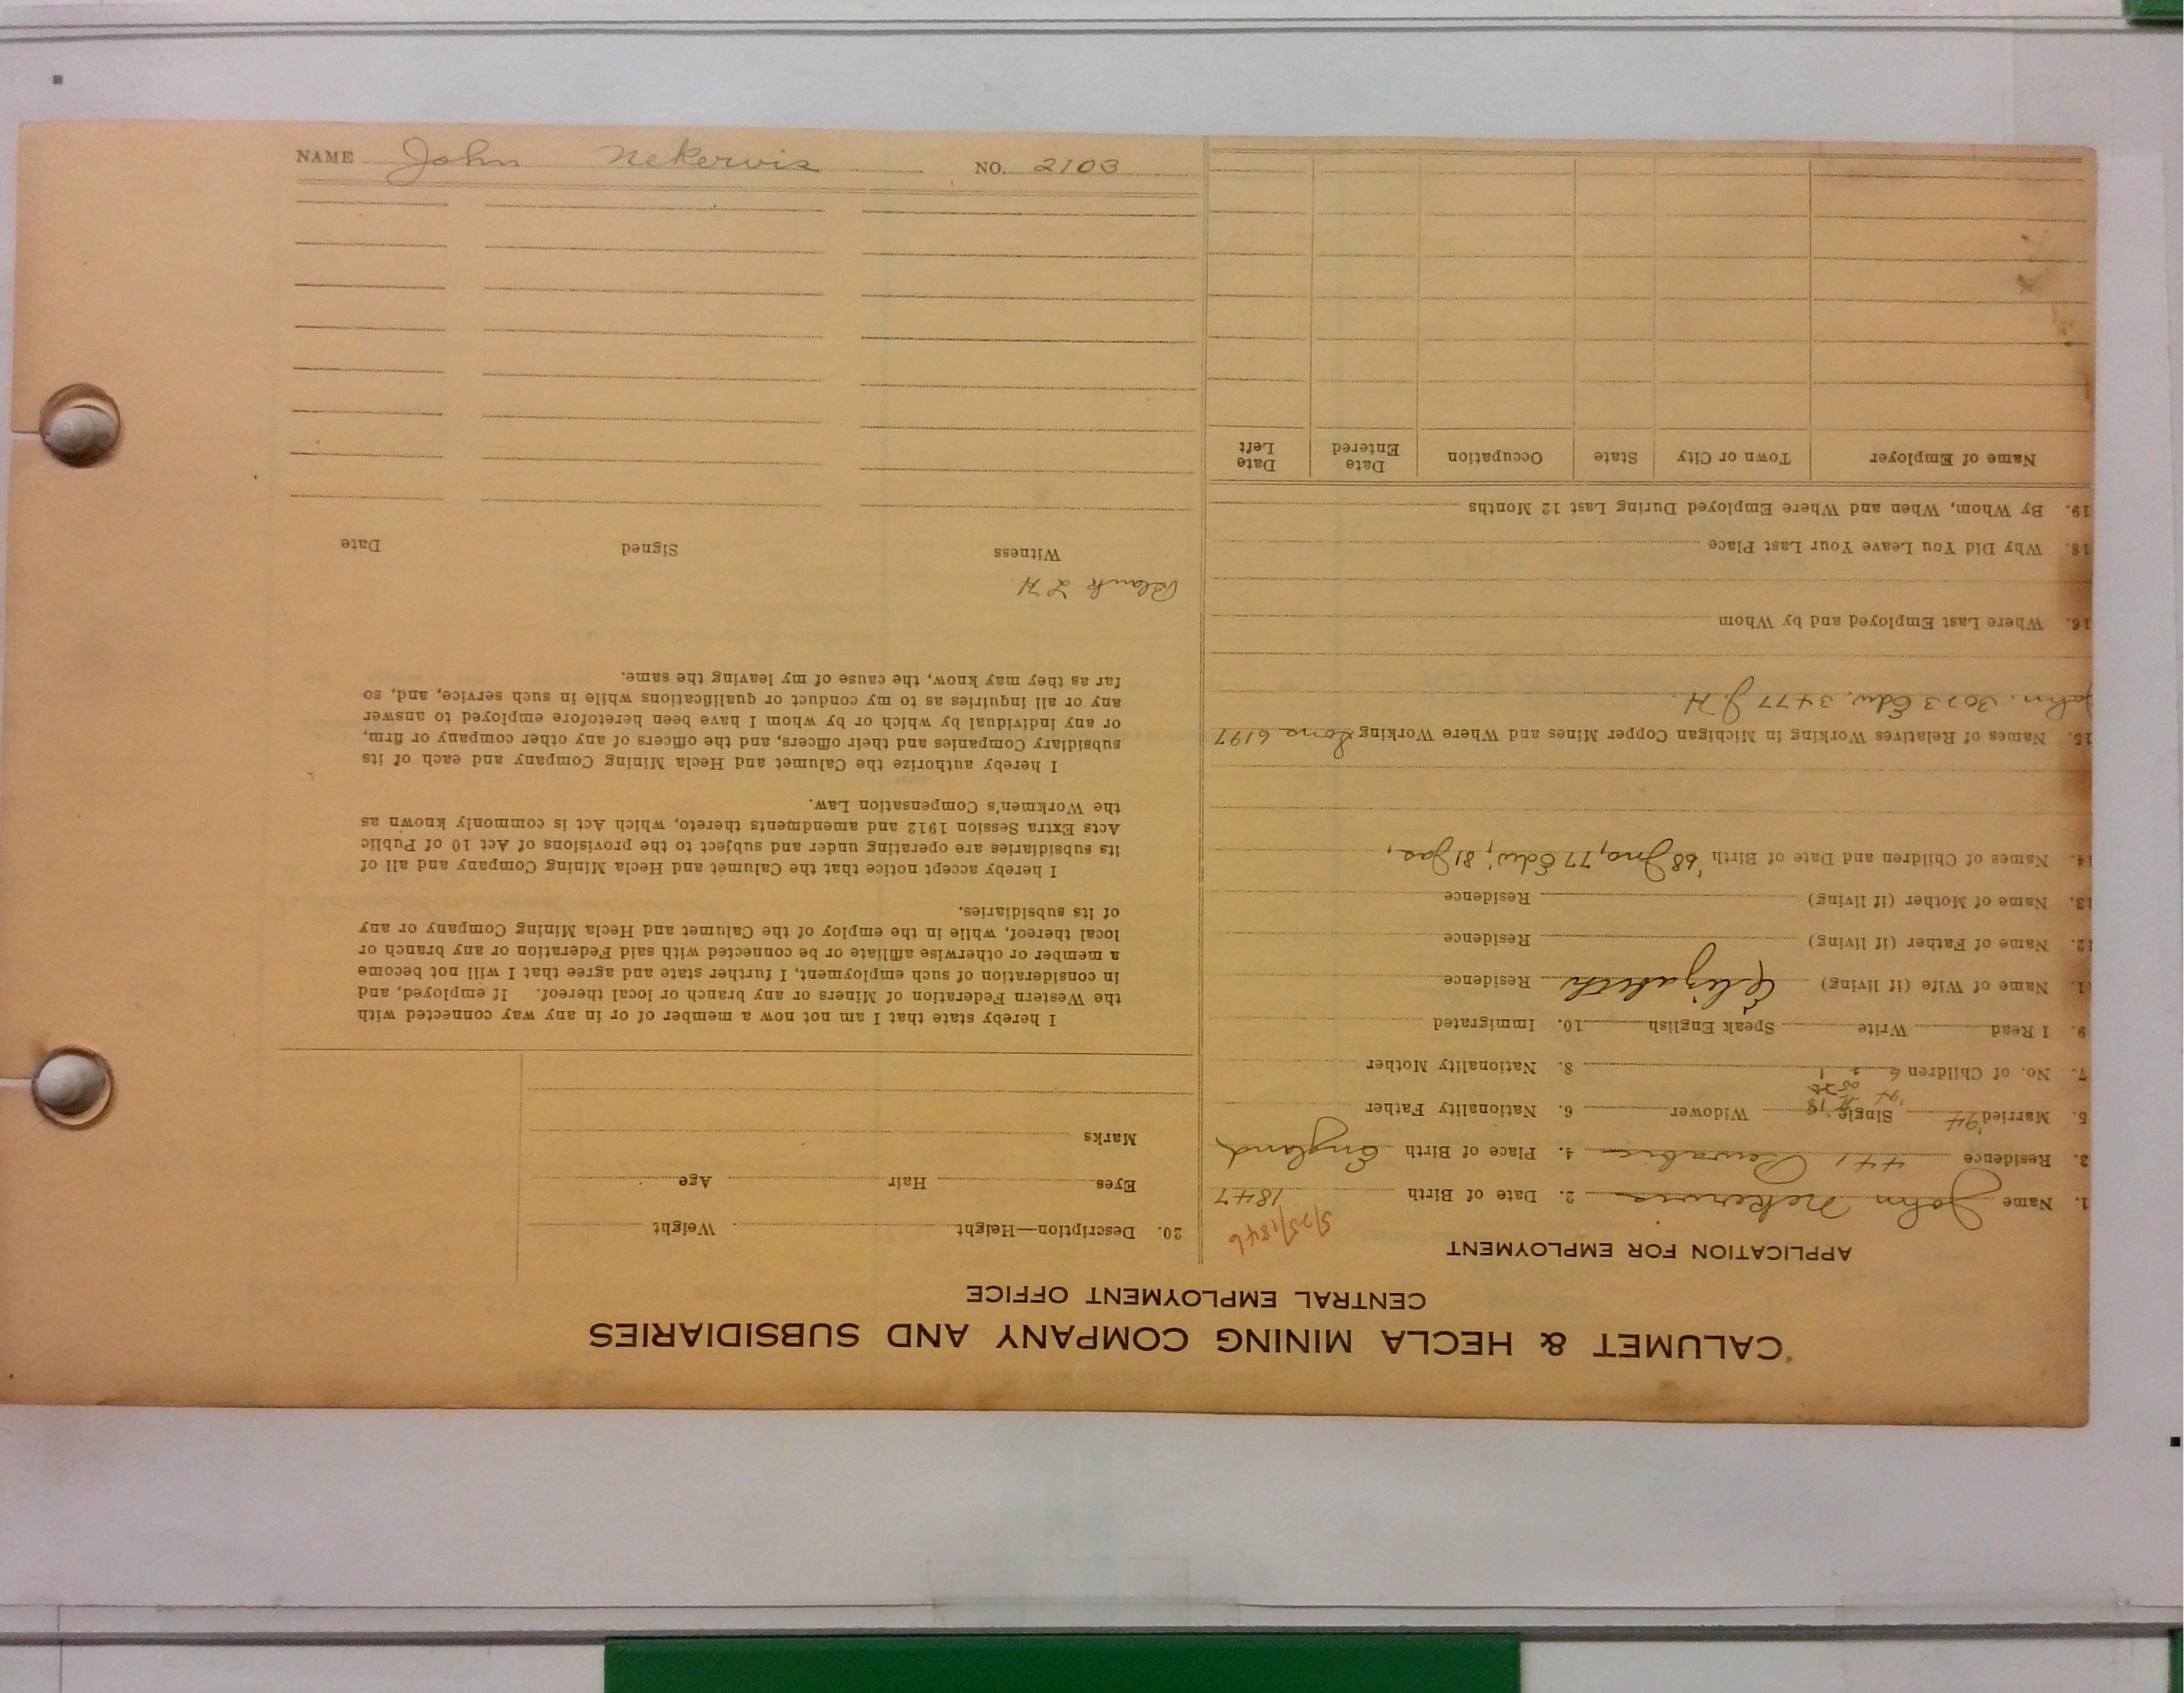 CALUMET & HECLA MINING COMPANY AND SUBSIDIARIES
CENTRAL EMPLOYMENT OFFICE
APPLICATION FOR EMPLOYMENT
5/25/1846
1. Name John Nekervis 2. Date of Birth 1847
3. Residence 441 Pewabic 4. Place of Birth England
5. Married '94 Single Widower 6. Nationality Father
'94 05
7. No. of Children 6 2 1 8. Nationality Mother
9. I Read Write Speak English 10. Immigrated
11. Name of Wife (if living) Elizabeth Residence
12. Name of Father (if living) Residence
13. Name of Mother (if living) Residence
14. Names of Children and Date of Birth '68 Jno, 77 Edw; 81 Jas,
15. Names of Relatives Working in Michigan Copper Mines and Where Working Sons 6197
John. 3023 Edw. 3477 J. H.
16. Where Last Employed and by Whom
18. Why Did You Leave Your Last Place
19. By Whom, When and Where Employed During Last 12 Months
Name of Employer Town or City State Occupation Date Entered Date Left
20. Description—Height Weight
Eyes Hair Age
Marks
I hereby state that I am not now a member of or in any way connected with
the Western Federation of Miners or any branch or local thereof. If employed, and
in consideration of such employment, I further state and agree that I will not become
a member or otherwise affiliate or be connected with said Federation or any branch or
local thereof, while in the employ of the Calumet and Hecla Mining Company or any
of its subsidiaries.
I hereby accept notice that the Calumet and Hecla Mining Company and all of
its subsidiaries are operating under and subject to the provisions of Act 10 of Public
Acts Extra Session 1912 and amendments thereto, which Act is commonly known as
the Workmen's Compensation Law.
I hereby authorize the Calumet and Hecla Mining Company and each of its
subsidiary Companies and their officers, and the officers of any other company or firm,
or any individual by which or by whom I have been heretofore employed to answer
any or all inquiries as to my conduct or qualifications while in such service, and, so
far as they may know, the cause of my leaving the same.
Blank L H
Witness Signed Date
NAME John Nekervis NO. 2103